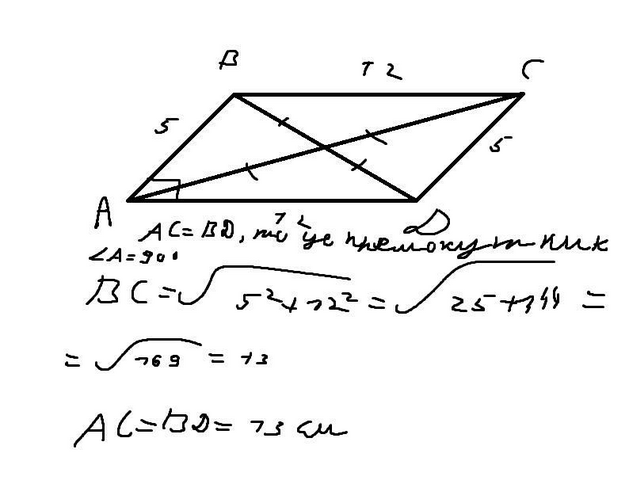 B 12 C
5 5
A 12 D
AC=BD, то це прямокутник
∠A=90°
BC=√5²+12² = √25+144 =
= √169 = 13
AC=BD= 13 см